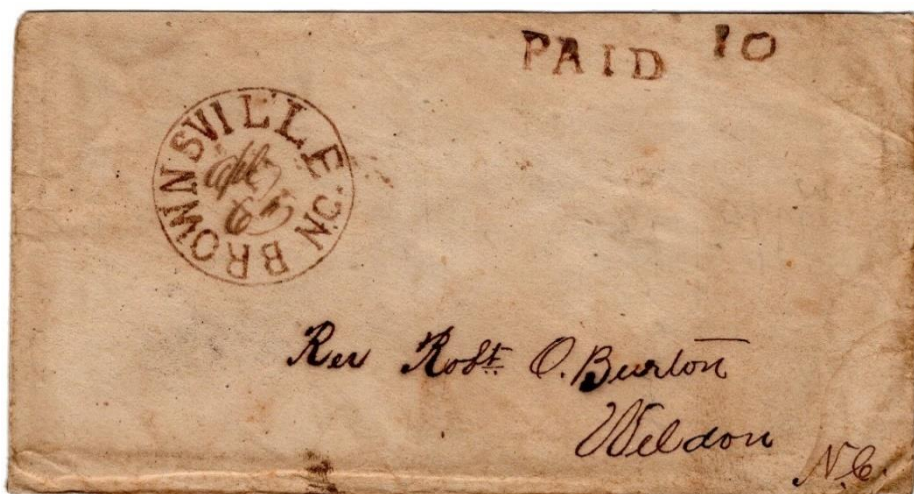 PAID 10
BROWNSVILLE N.C.
Rev Robt. O. Burton
Weldon
N.C.